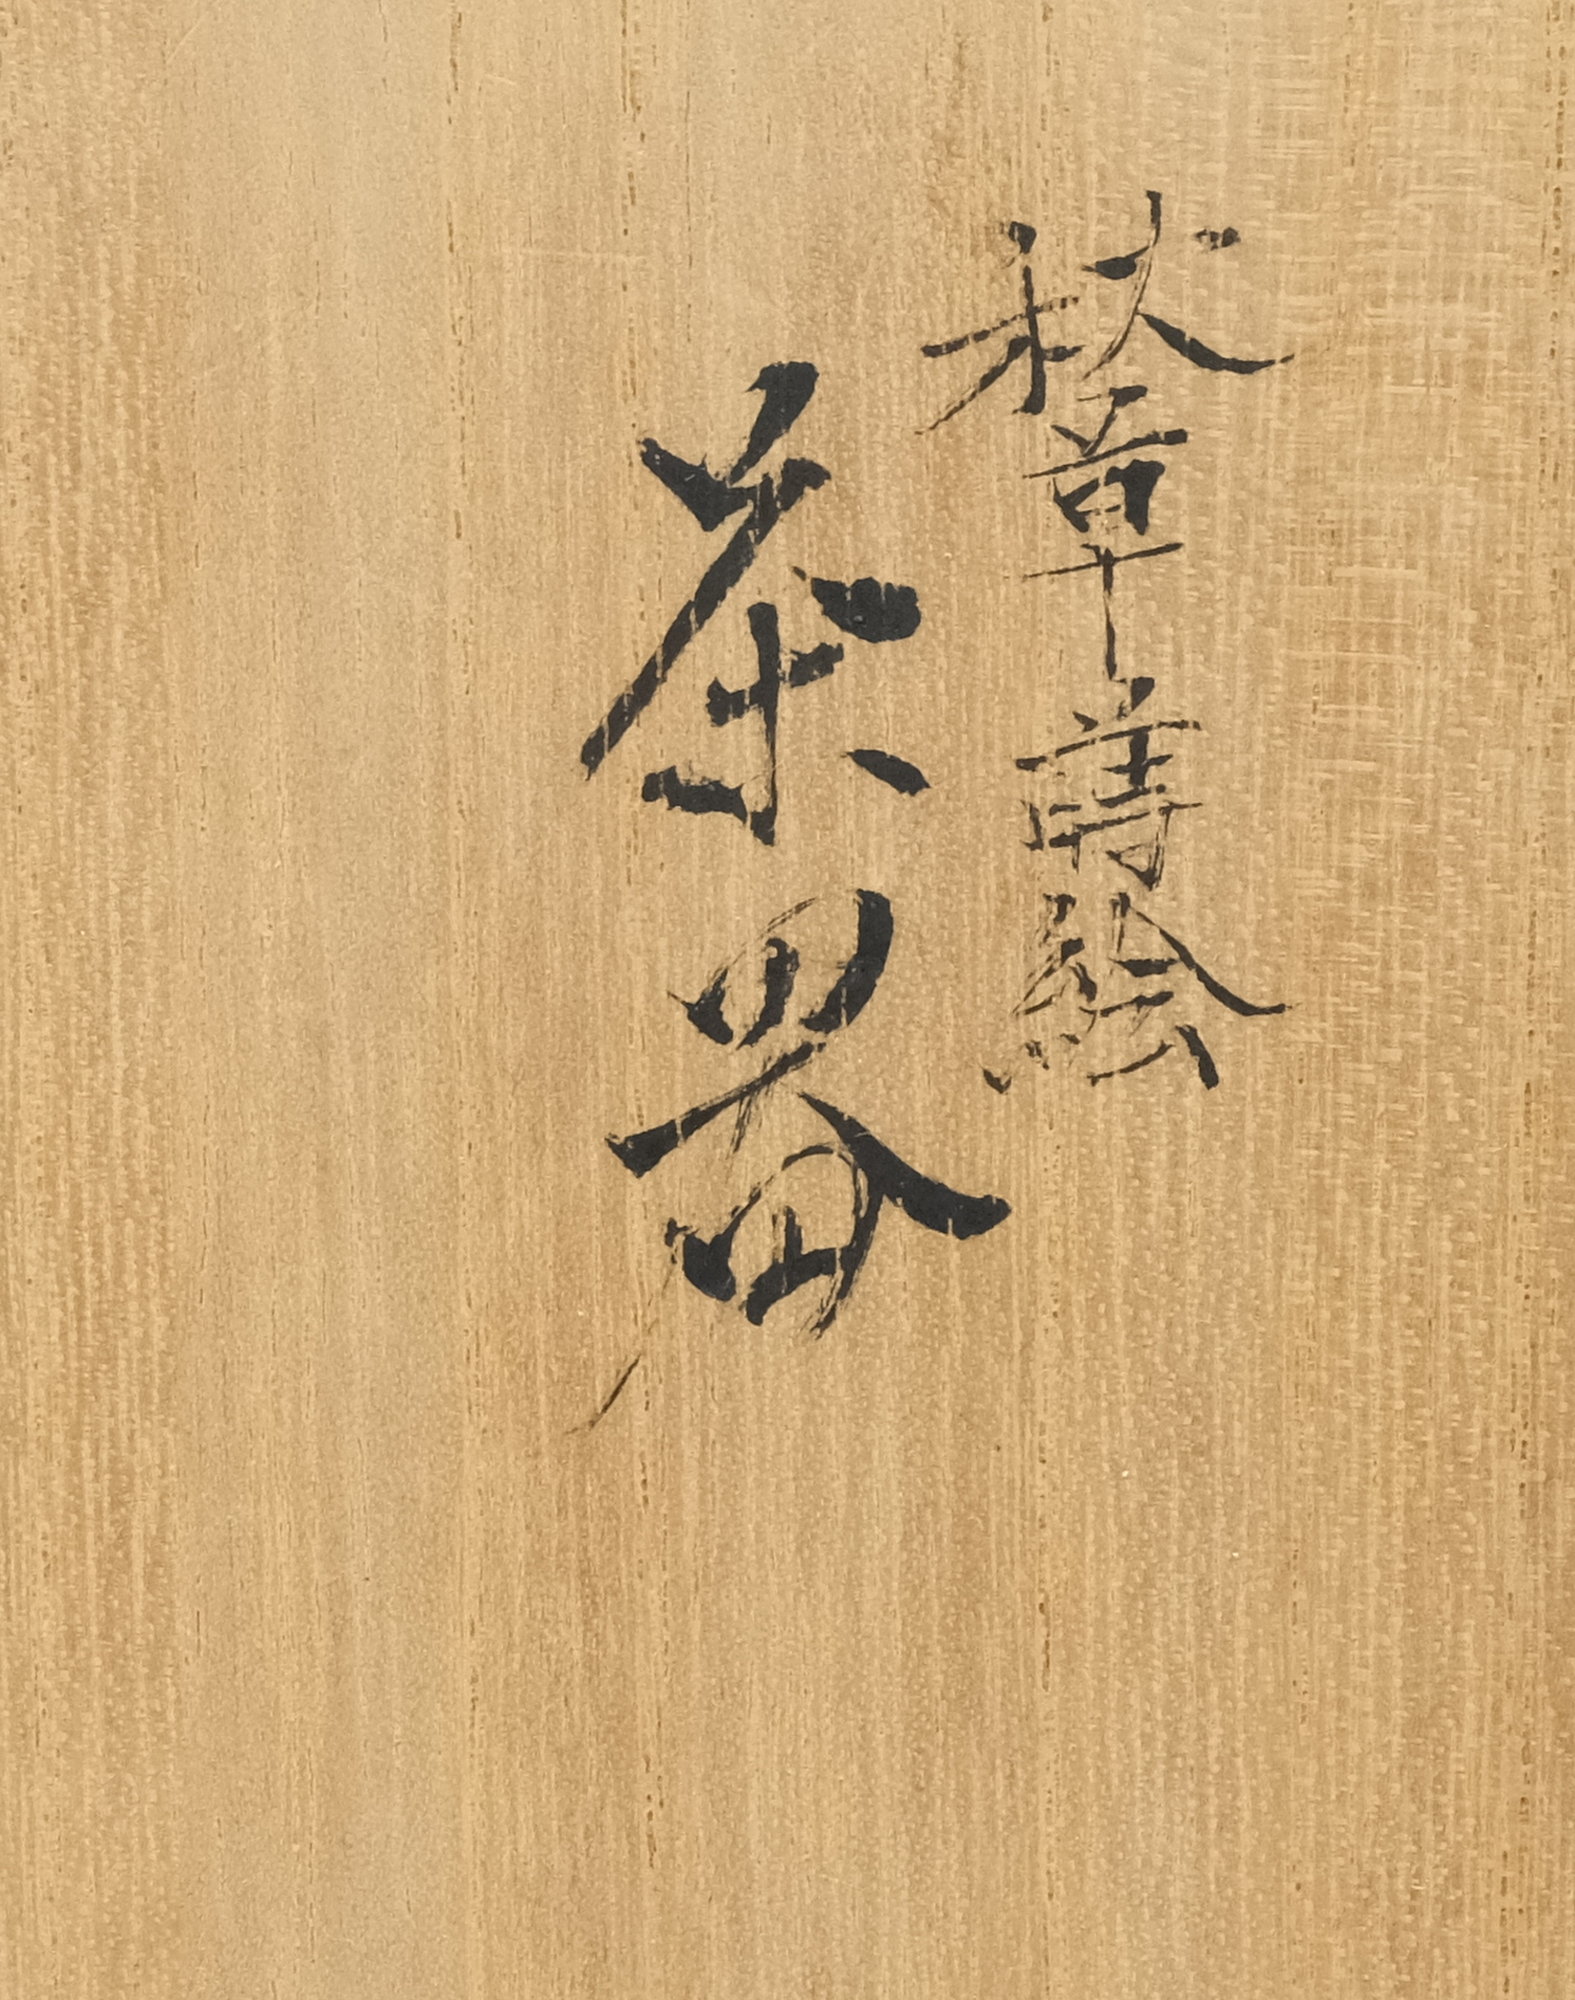 秋草蒔絵
茶器